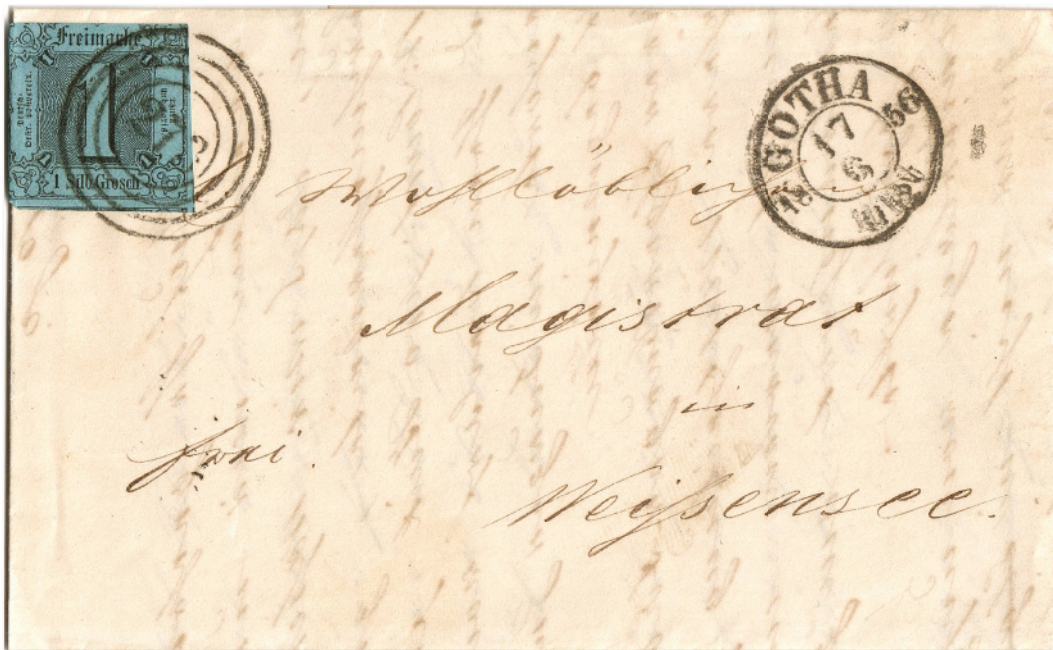 Freimarke
1
1 Silb. Grosch
GOTHA
18 56
17
6
Wohllöblichen
Magistrat
in
frei.
Weißensee.